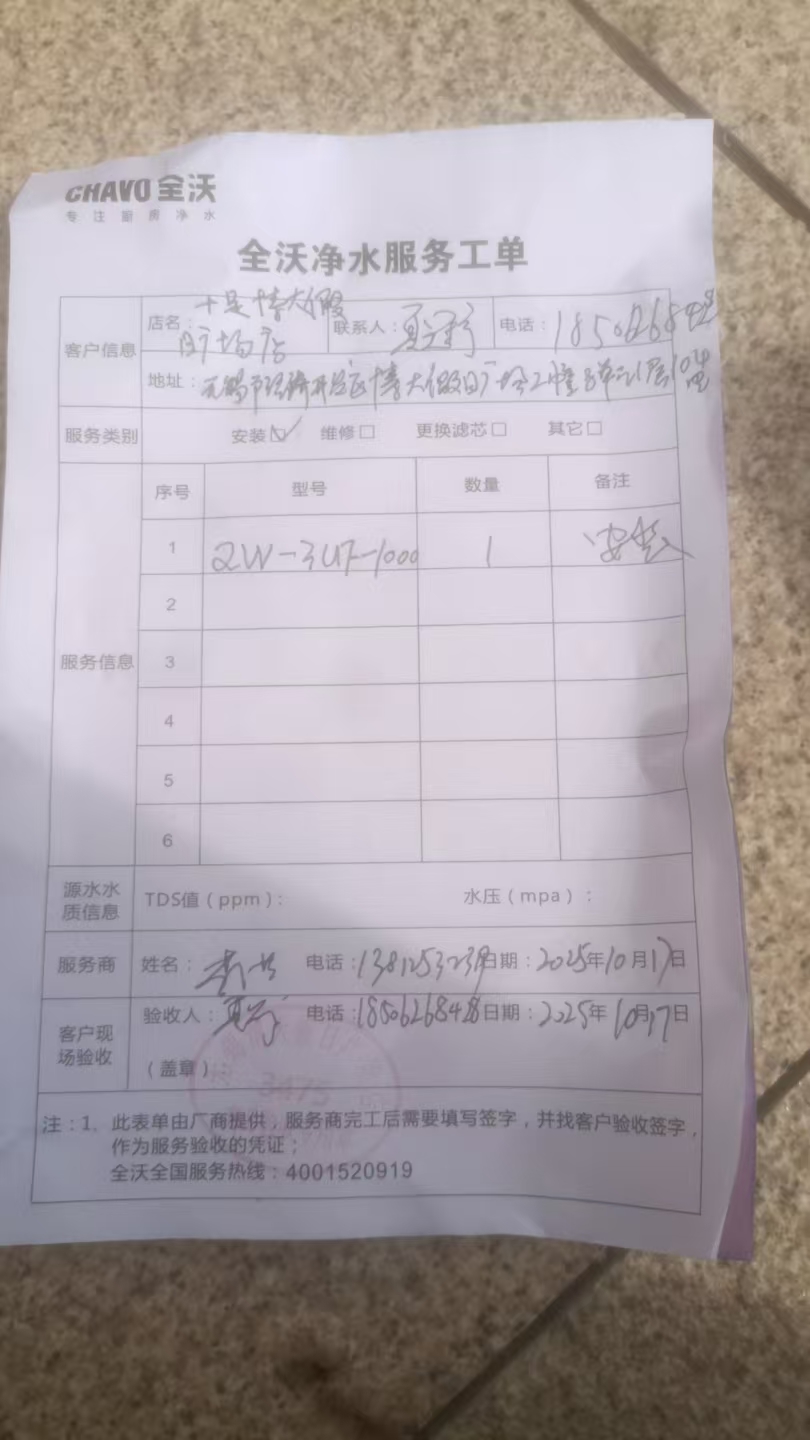 CHAVO 全沃
专注厨房净水
全沃净水服务工单
客户信息
店名：
联系人：
电话：
地址：
服务类别
安装☑ 维修☐ 更换滤芯☐ 其它☐
服务信息
序号 型号 数量 备注
1 QW-3UF-1000 1 安装
2
3
4
5
6
源水水质信息
TDS值（ppm）： 水压（mpa）：
服务商
姓名： 电话： 日期：2025年10月17日
客户现场验收
验收人： 电话：18506268428 日期：2025年10月17日
（盖章）：
3475
注：1、此表单由厂商提供，服务商完工后需要填写签字，并找客户验收签字，
作为服务验收的凭证；
全沃全国服务热线：4001520919